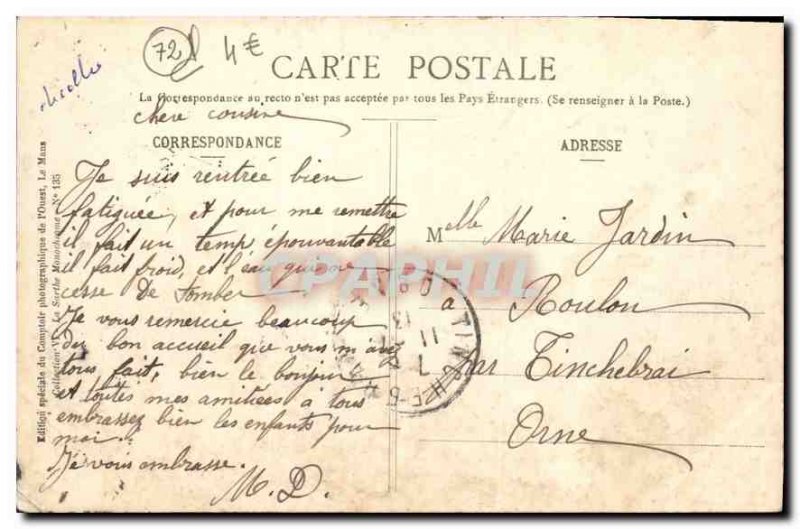 72
4€
CARTE POSTALE
La Correspondance au recto n'est pas acceptée par tous les Pays Étrangers. (Se renseigner à la Poste.)
chere cousine
CORRESPONDANCE
Je suis rentrée bien
fatiguée, et pour me remettre
il fait un temp épouvantable
il fait froid, et l'eau qui ne
cesse de tomber
Je vous remercie beaucoup
du bon accueil que vous m'avez
tous fait, bien le bonjour
et toutes mes amitiées a tous
embrassez bien les enfants pour
moi.
Je vous embrasse.
M. D.
ADRESSE
Melle Marie Jardin
a Roulon
par Tinchebrai
Orne
CPARAMA
Edition spéciale du Comptoir photographique de l'Ouest, Le Mans
Collection La Sarthe N° 135